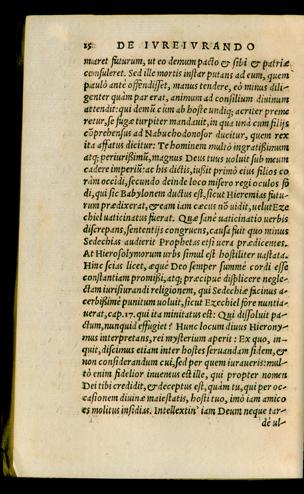 15. DE IVREIVRANDO
maret futurum, ut eo demum pacto & sibi & patriæ
consuleret. Sed ille mortis instar putans ad eum, quem
paulò antè offendisset, manus tendere, eò minus dili-
genter quàm par erat, animum ad consilium divinum
attendit: qui demũ cũm ab hoste undiq; acriter preme
retur, se fugæ turpiter mandauit, in qua unà cum filijs
cõprehensus ad Nabuchodonosor ducitur, quem rex
ita affatus dicitur: Te hominem multò ingratißimum
atq; periurißimũ, magnus Deus tuus uoluit sub meum
cadere imperiũ: ac his dictis, iußit primò eius filios co
ràm occidi, secundo deinde loco misero regi oculos fo
di, qui sic Babylonem ductus est, sicut Hieremias futu-
rum prædixerat, & eam iam cæcus nõ uidit, uelut Eze
chiel uaticinatus fuerat. Quæ sanè uaticinatio uerbis
discrepans, sententijs congruens, causa fuit quo minus
Sedechias audierit Prophetas etsi uera prædicentes.
At Hierosolymorum urbs simul est hostiliter uastata.
Hinc scias licet, æquè Deo semper summè cordi esse
constantiam promißi, atq; præcipuè displicere neglе-
ctam iurisiurandi religionem, qui Sedechiæ facinus a-
cerbißimè punitum uoluit, sicut Ezechiel fore nuntia-
uerat, cap. 17. qui ita minitatus est: Qui dissoluit pa-
ctum, nunquid effugiet? Hunc locum diuus Hierony-
mus interpretans, rei mysterium aperit: Ex quo, in-
quit, discimus etiam inter hostes seruandam fidem, &
non considerandum cui, sed per quem iuraueris: mul-
tò enim fidelior inuentus est ille, qui propter nomen
Dei tibi credidit, & deceptus est, quàm tu, qui per oc-
casionem diuinæ maiestatis, hosti tuo, imò iam amico
es molitus insidias. Intellextin' iam Deum neque tar-
dè ul-